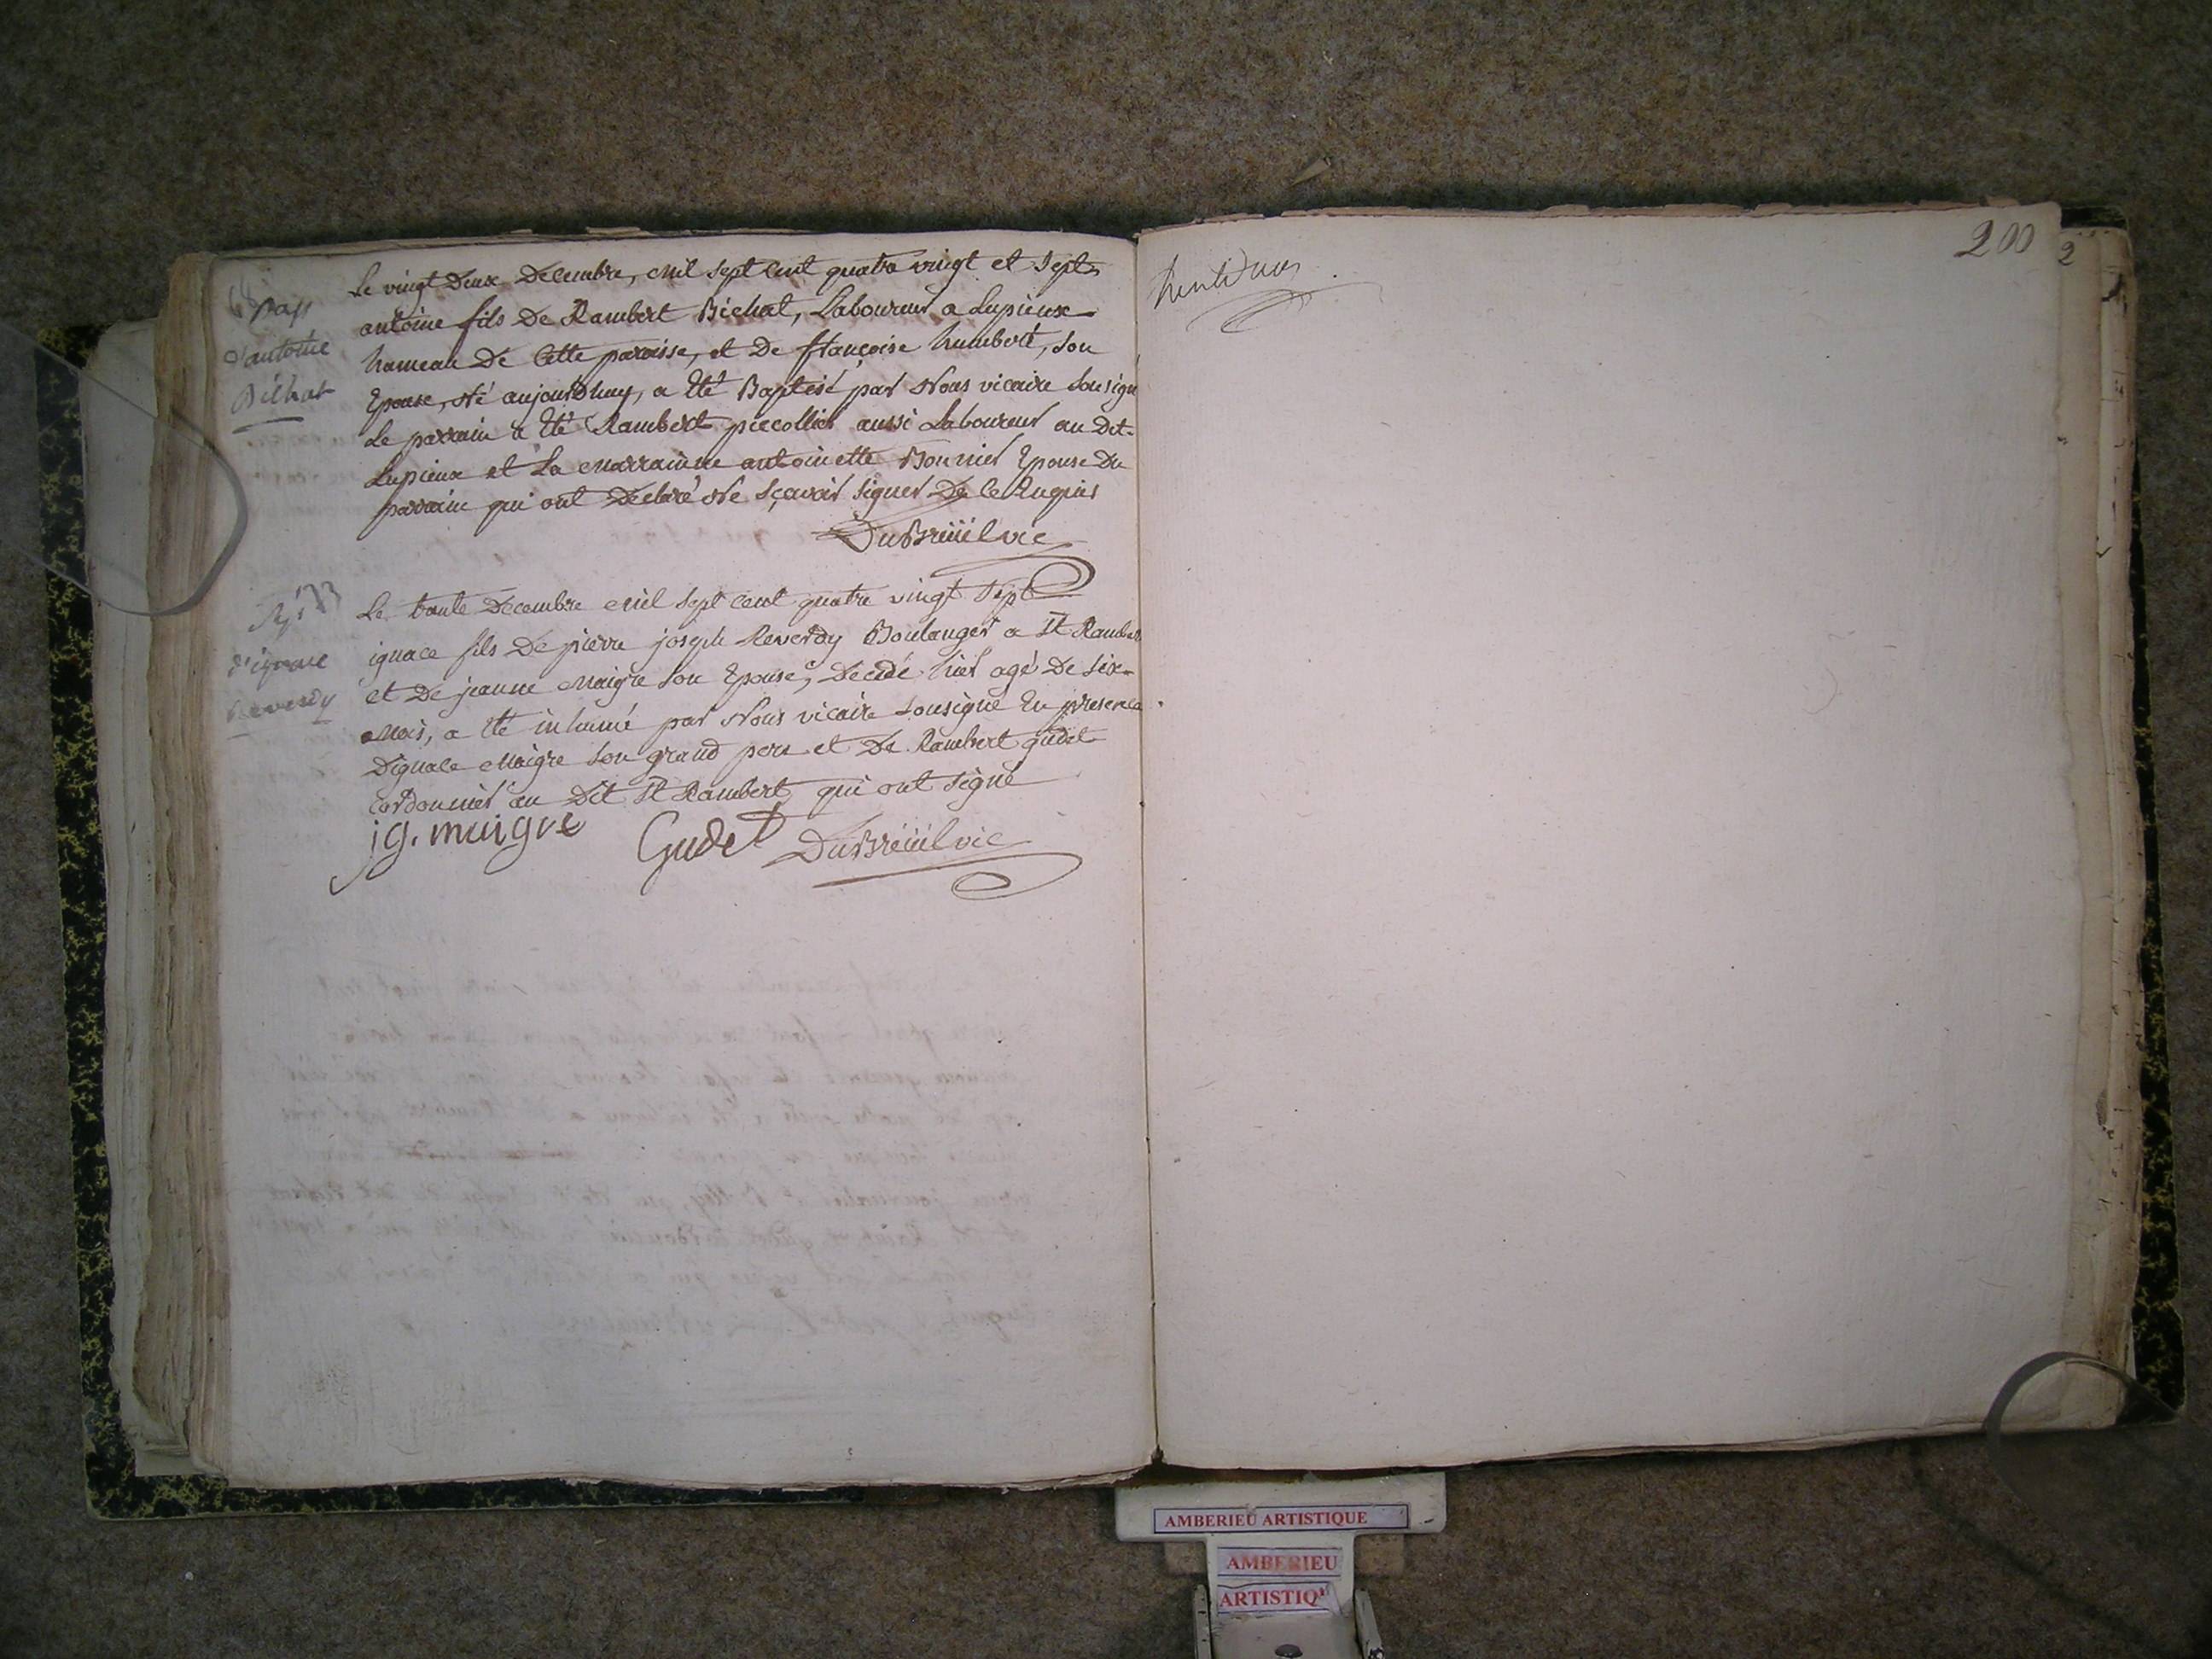 Bap
d'antoine
Bichat
Le vingt Deux Decembre, mil sept cent quatre vingt et sept
antoine fils De Rambert Bichat, Laboureur a Lupieux
hameau De Cette paroisse, et De françoise humbert, son
Epouse, Né aujourdhuy, a Eté Baptisé par Nous vicaire sousigné
Le parrain a Eté Rambert piccollet aussi Laboureur au Dit
Lupieux et La Marrainne antoinette Bonnier Epouse Du
parrain qui ont Declaré Ne sçavoir signer De Ce Enquis
DuBreüil vic
d'ignace
Reverdy
Le trente Decembre mil sept cent quatre vingt sept
ignace fils De pierre joseph Reverdy Boulanger a St Rambert
et De jeanne Maigre son Epouse, Decedé hier agé De six
Mois, a Eté inhumé par Nous vicaire sousigné En presence
Dignace Maigre son grand pere et De Rambert gudet
Cordonnier au Dit St Rambert qui ont signé
ig. maigre Gudet DuBreüil vic
200
2
AMBERIEU ARTISTIQUE
AMBERIEU
ARTISTIQ